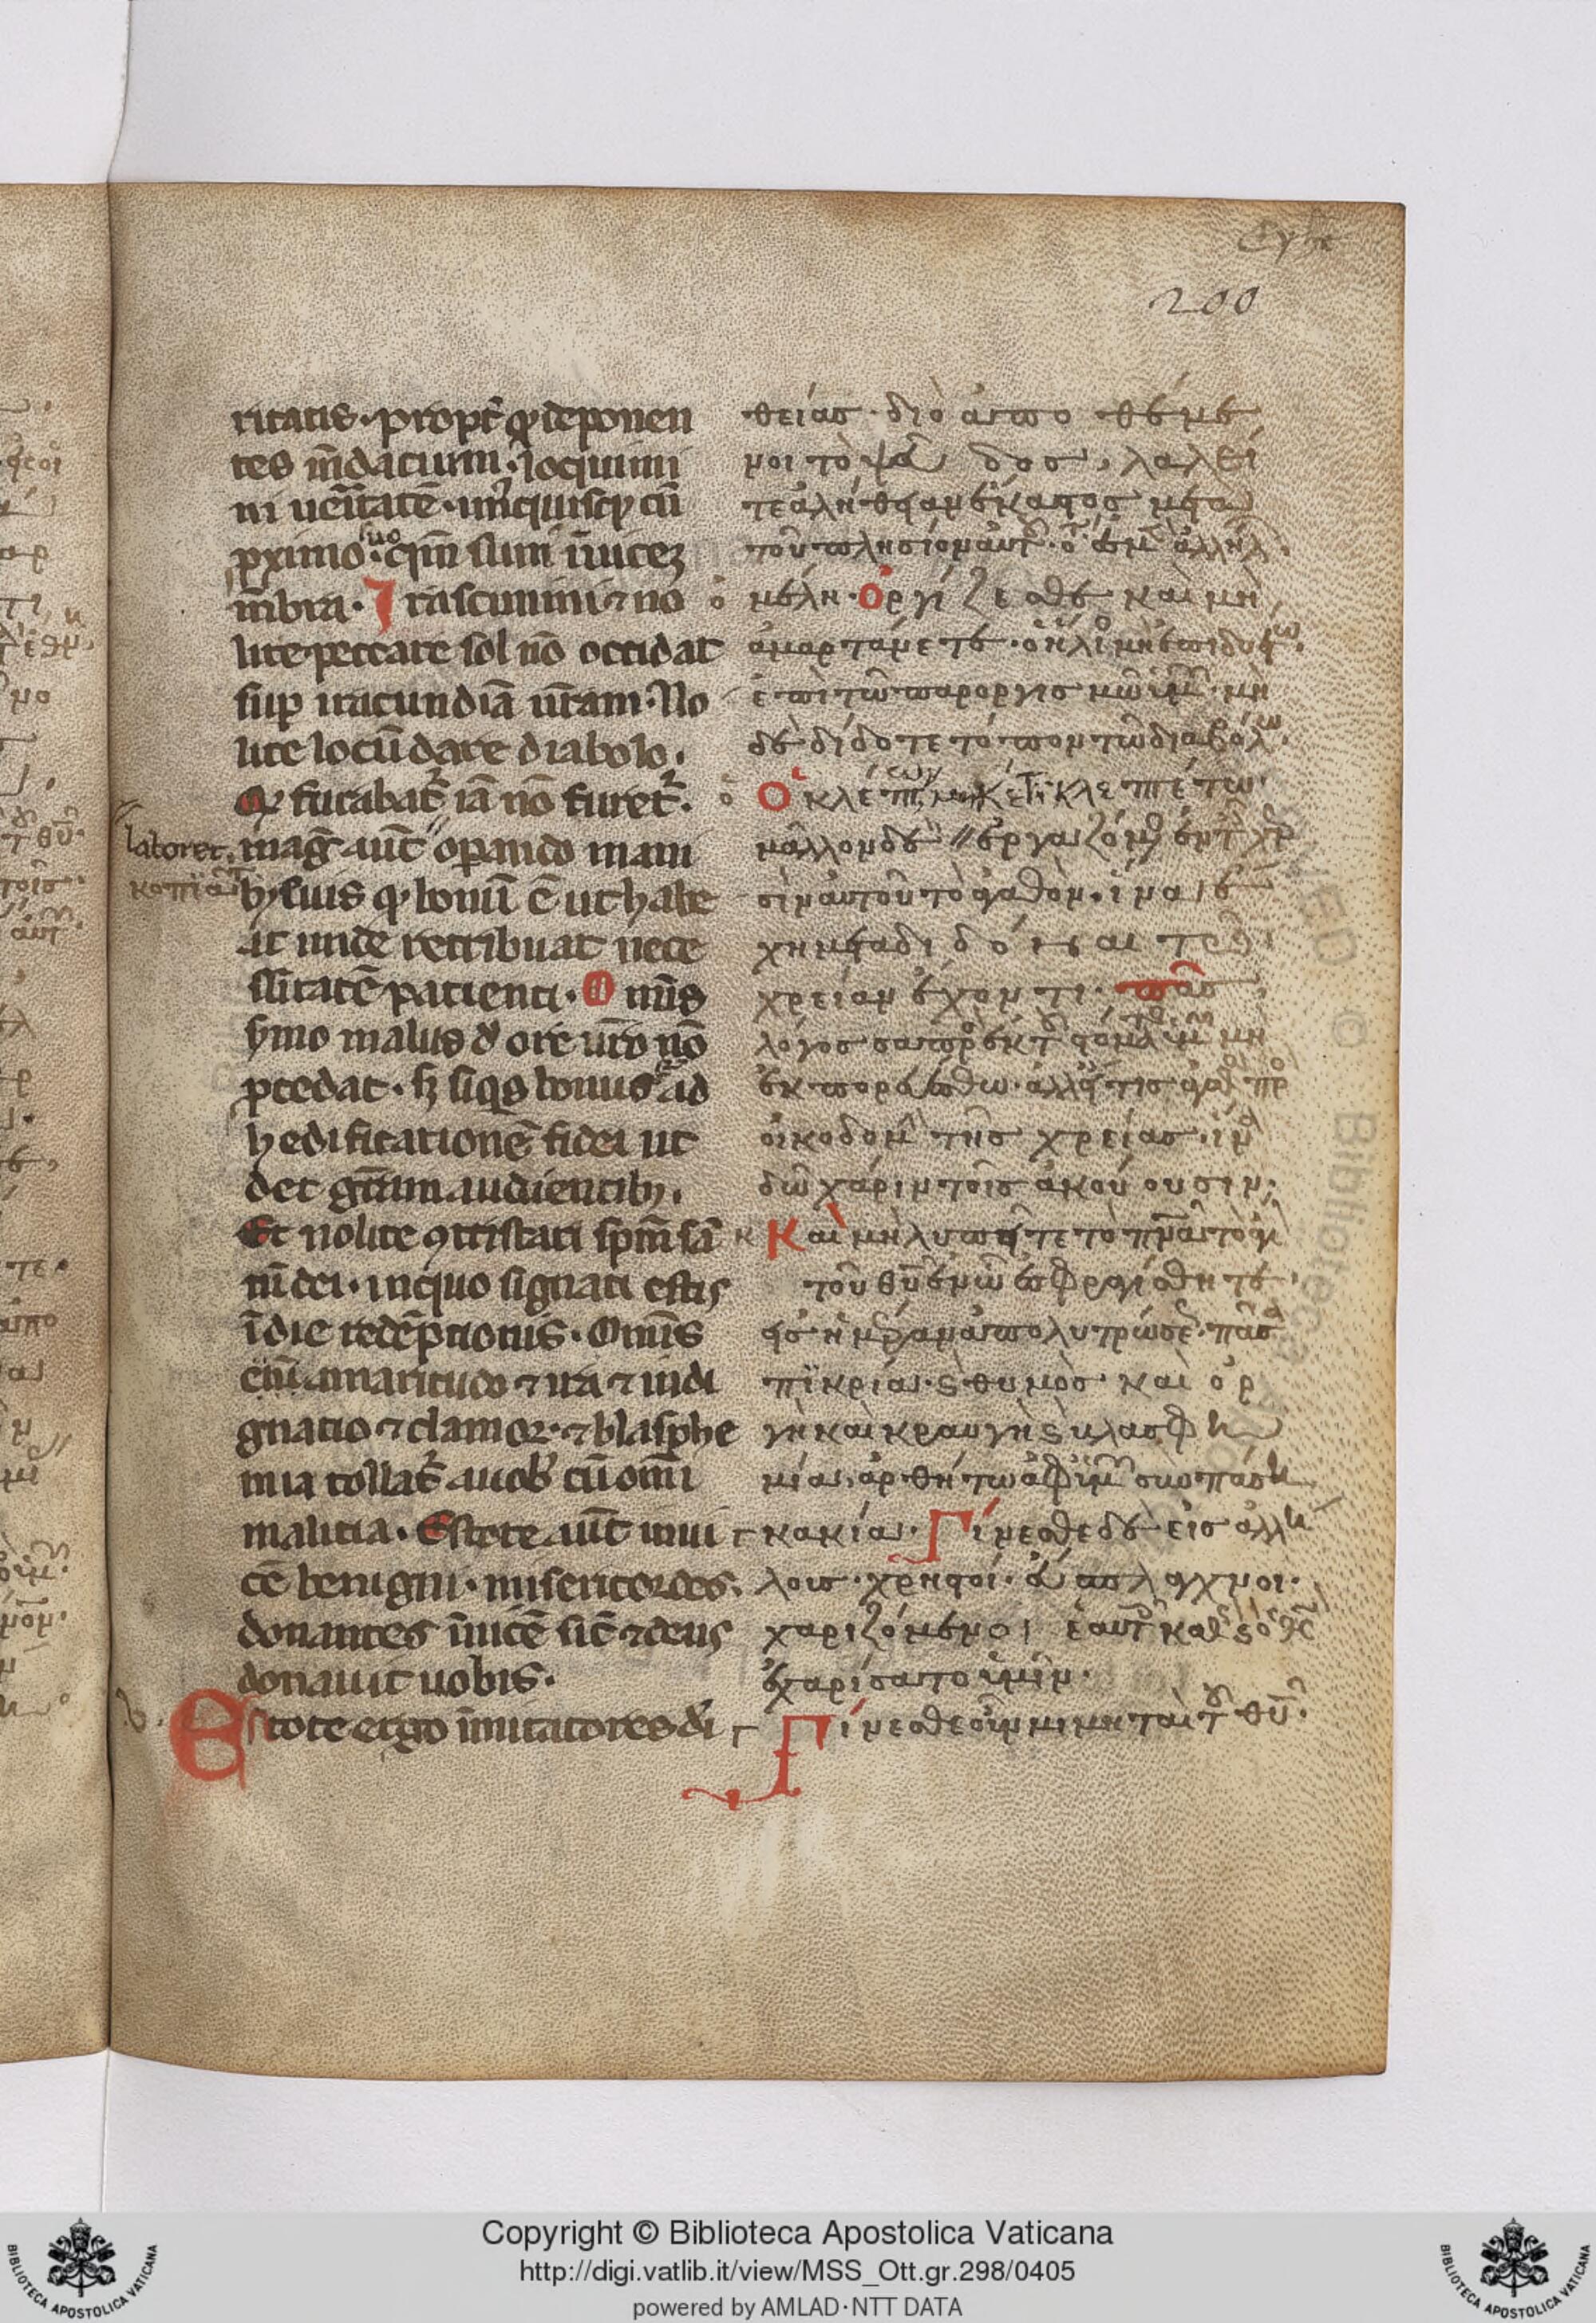 200
ritatis · propt̄ qd̄ deponen
tes m̄daciu̅m · loquimi
ni ue̅ritate̅ · un̅quisq̨ cu̅
ꝓximo suo · qm̅ sum̅ i̅uice̅
m̅bra · Irascimini ⁊ no
lite peccare sol no̅ occidat
suꝑ iracundia̅ ur̅am · No
lite locu̅ dare diabolo ·
Qi furabat᷑ ia̅ no̅ furet᷑ ·
laboret · mag̅ aut̅ oꝑando mani
bꝫ suis qd̄ bonu̅ e̅ ut habe
at unde retribuat nece
ssitate̅ patienti · Omīs
s̓mo malus d̓ ore ur̅o no̅
ꝓcedat · sꝫ siq̇s bonus ad
hedificatione̅ fidei ut
det gr̅am audientibꝫ ·
Et nolite ꝯtristari sp̅m sa̅
cm̅ dei · in quo signati estis
i̅ die rede̅ptionis · Omīs
eni̅ amaritudo ⁊ ira ⁊ indi
gnatio ⁊ clamor · ⁊ blasphe
mia tollat᷑ a uob᷑ cu̅ om̅i
malitia · Estote aut̅ inui
ce̅ benigni · misericordes ·
donantes i̅uice̅ sic̅ ⁊ deus
donauit uobis ·
Estote ergo imitatores di̅
κοπιάτω
θείας · διὸ ἀποθέμε
νοι τὸ ψεῦδος, λαλεῖ
τε ἀλήθειαν ἕκαστος μετὰ
τοῦ πλησίον αὐτ · ὅτι ἐσμ̅ ἀλλήλ ·
μέλη · Ὀργίζεσθε καὶ μὴ
ἁμαρτάνετε · ὁ ἥλι μὴ ἐπιδυέτω ·
ἐπὶ τῶ παροργισμῶ ὑμ̅ · μὴ
δὲ δίδοτε τόπον τῶ διαβόλω ·
Ὁ κλέπτων μηκέτι κλεπτέτω ·
μᾶλλον δὲ // ἐργαζόμ ἐν τ χερ
σὶν αὐτοῦ τὸ ἀγαθὸν · ἵνα ἔ
χη μεταδιδόναι τῶ
χρείαν ἔχοντι · πᾶς
λόγος σαπρ ἐκ τ στόμα ὑμ̅ μὴ
ἐκπορευέσθω · ἀλλ εἴ τις ἀγαθ πρ
οἰκοδομ̅ τῆς χρείας · ἵνα
δῶ χάριν τοῖς ἀκούουσιν ·
Καὶ μὴ λυπεῖτε τὸ πνα̅ τὸ ἅγι
τοῦ θυ̅ ἐν ὧ ἐσφραγίσθητε ·
εἰς ἡμέραν ἀπολυτρώσε · πᾶσα
πϊκρία · ϗ θυμὸς καὶ ὀρ
γὴ καὶ κραυγὴ ϗ βλασφη
μία · ἀρθήτω ἀφ ὑμ̅ σὺν πάση
κακία · Γίνεσθε δὲ εἰς ἀλλή
λους · χρηστοί · εὔσπλαγχνοι ·
χαριζόμενοι ἑαυτ καθ ϗ ὁ θς̅
ἐχαρίσατο ὑμῖν ·
Γίνεσθε οὖν μιμηταὶ τ θυ̅ ·
Copyright © Biblioteca Apostolica Vaticana
http://digi.vatlib.it/view/MSS_Ott.gr.298/0405
powered by AMLAD·NTT DATA
BIBLIOTECA APOSTOLICA VATICANA
BIBLIOTECA APOSTOLICA VATICANA